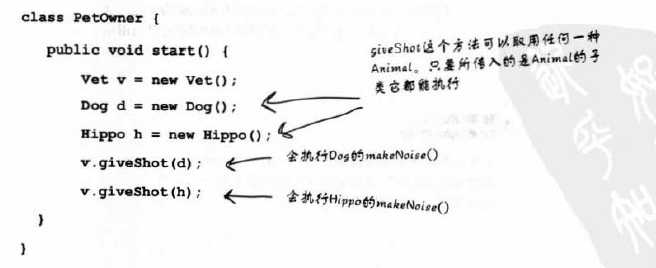 class PetOwner {
public void start() {
Vet v = new Vet();
Dog d = new Dog();
Hippo h = new Hippo();
v.giveShot(d);
v.giveShot(h);
}
}
giveShot这个方法可以取用任何一种
Animal。只要所传入的是Animal的子
类它都能执行
会执行Dog的makeNoise()
会执行Hippo的makeNoise()